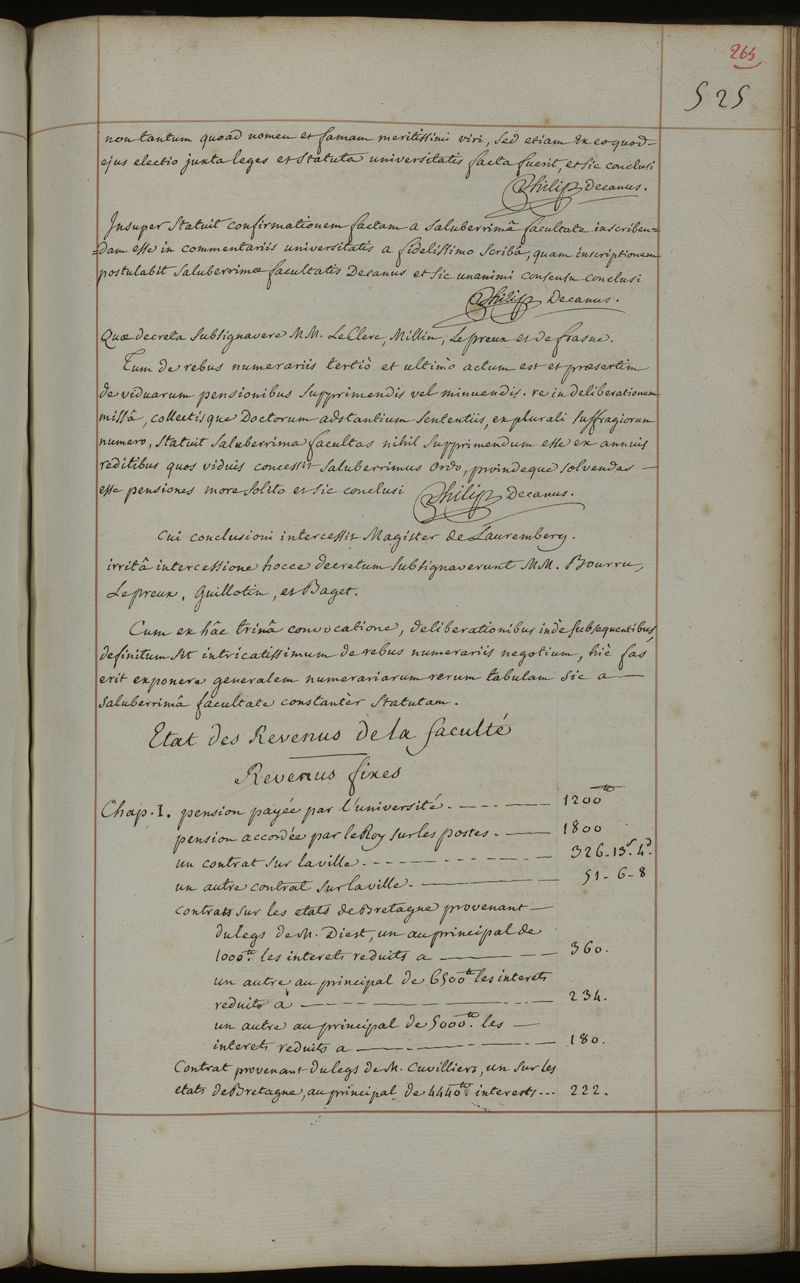 265
525
non tantum quoad nomen et famam meritissimi viri, sed etiam ex eo quod=
ejus electio juxta leges et statuta universitatis facta fuerit, et sic conclusi
Philip Decanus.
Insuper statuit confirmationem factam a saluberrimâ facultate inscriben=
=dam esse in commentariis universitatis a fidelissimo scribâ, quam inscriptionem
postulabit saluberrimæ facultatis Decanus et sic unanimi consensu conclusi
Philip Decanus.
Quæ decreta subsignavere MM. LeClerc, Millin, Lepreux et de frasne.
Tum de rebus numerariis tertiò et ultimò actum est et præsertim
de viduarum pensionibus supprimendis vel minuendis. re in deliberationem
missâ, collectisque Doctorum adstantium sententiis, ex plurali suffragiorum
numero, statuit saluberrima facultas nihil supprimendum esse ex annuis
reditibus quos viduis concessit saluberrimus ordo, proindeque solvendas —
esse pensiones more solito et sic conclusi Philip Decanus.
Cui conclusioni intercessit Magister de Lauremberg.
irritâ intercessione hocce decretum subsignaverunt MM. Bourru,
Lepreux, Guillotin, et Baget.
Cum ex hâc trinâ convocatione, deliberationibus indè subsequentibus,
definitum sit intricatissimum de rebus numerariis negotium, hîc fas
erit exponere generalem numerariarum rerum tabulam sic a —
saluberrimâ facultate constantèr statutam.
Etat des Revenus de la faculté
Revenus fixes
Chap. I. pension payée par l'université. — 1200 tt
pension accordée par le Roy sur les postes. — 1800
un contrat sur la ville. — 326.13s.4d.
un autre contrat sur la ville. — 51-6-8
contrats sur les etats de Bretagne provenant —
du legs de M. Diest, un au principal de
1000 tt. les interets reduits a — 360.
un autre au principal de 6500 tt les interets
reduits à — 234.
un autre au principal de 5000 tt. les —
interets reduits a — 180.
Contrat provenant du legs de M. Cuvilliers, un sur les
etats de Bretagne, au principal de 4440 tt. interests... 222.